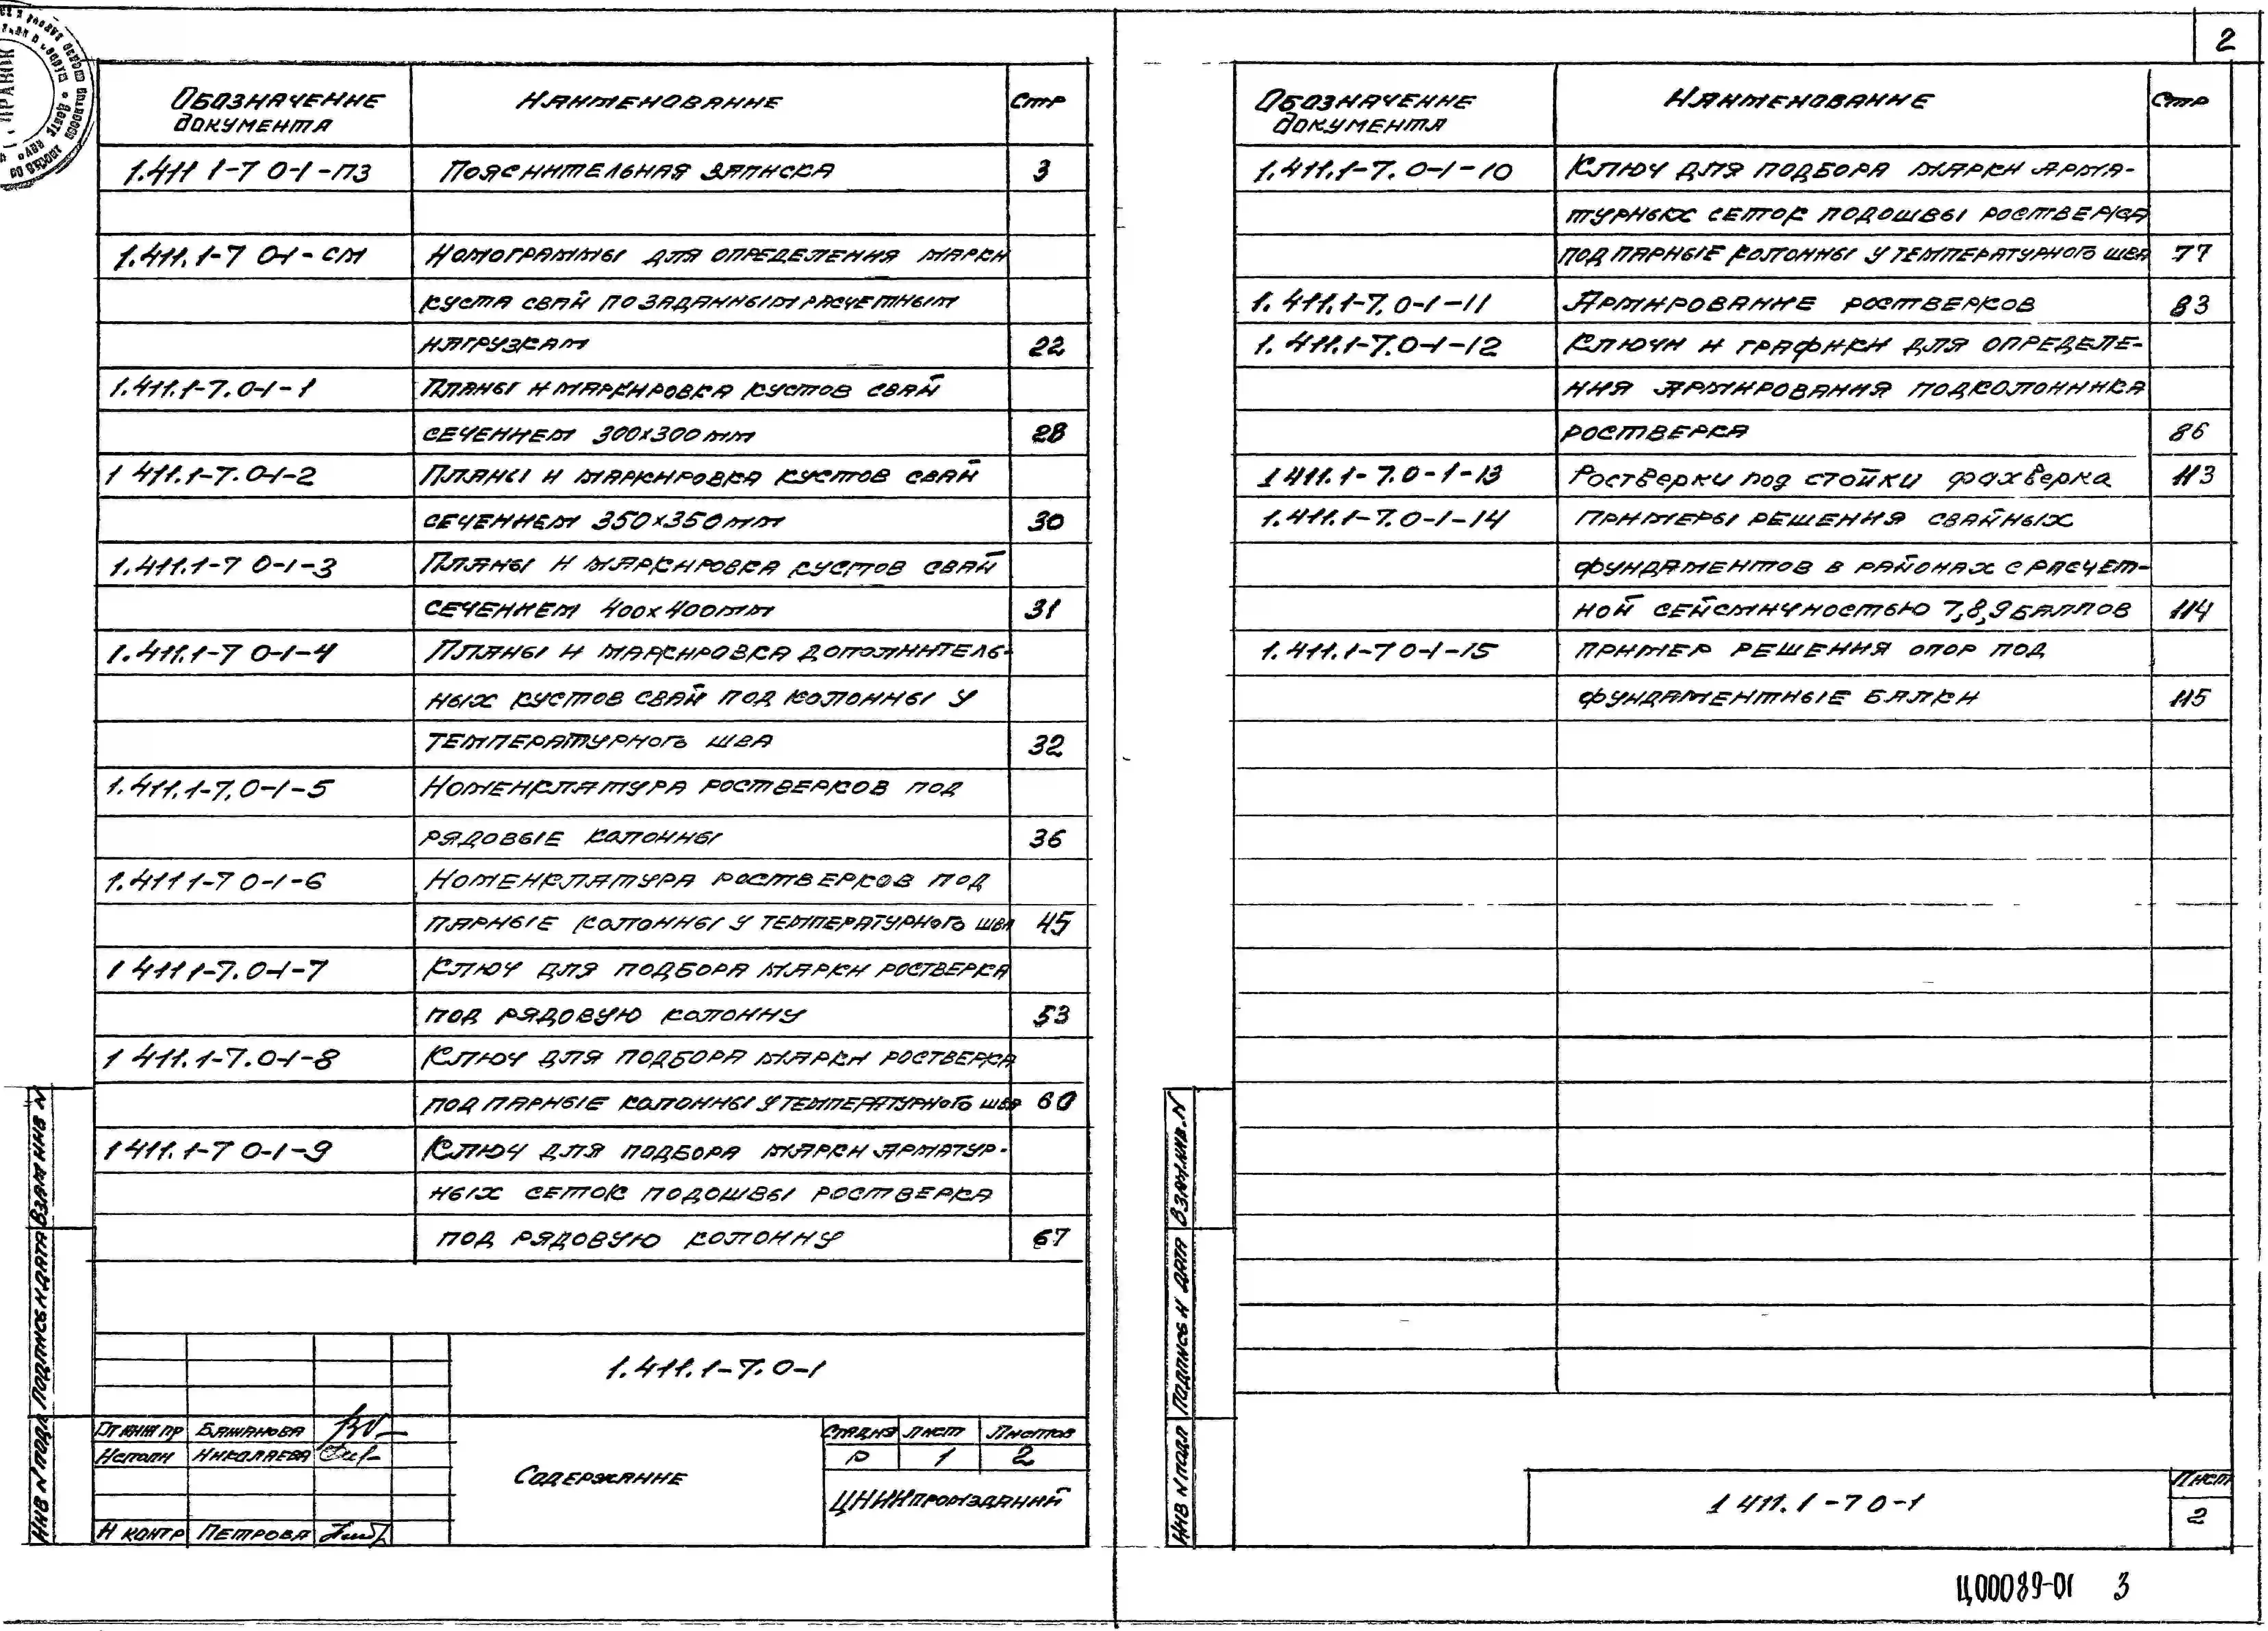 Обозначение документа Наименование Стр
1.411 1-7 0-1-ПЗ Пояснительная записка 3
1.411.1-7 0-1-СМ Номограммы для определения марки
куста свай по заданным расчетным
нагрузкам 22
1.411.1-7.0-1-1 Планы и маркировка кустов свай
сечением 300х300мм 28
1 411.1-7.0-1-2 Планы и маркировка кустов свай
сечением 350х350мм 30
1.411.1-7 0-1-3 Планы и маркировка кустов свай
сечением 400х400мм 31
1.411.1-7 0-1-4 Планы и маркировка дополнитель-
ных кустов свай под колонны у
температурного шва 32
1.411.1-7.0-1-5 Номенклатура ростверков под
рядовые колонны 36
1.411 1-7 0-1-6 Номенклатура ростверков под
парные колонны у температурного шва 45
1 411 1-7.0-1-7 Ключ для подбора марки ростверка
под рядовую колонну 53
1 411.1-7.0-1-8 Ключ для подбора марки ростверка
под парные колонны у температурного шва 60
1 411.1-7 0-1-9 Ключ для подбора марки арматур-
ных сеток подошвы ростверка
под рядовую колонну 67
1.411.1-7.0-1
Гл инж пр Бажанова
Исполн Николаева
Н контр Петрова
Содержание
Стадия Лист Листов
Р 1 2
ЦНИИпромзданий
Инв N подл Подпись и дата Взам инв N
2
Обозначение документа Наименование Стр
1.411.1-7.0-1-10 Ключ для подбора марки арма-
турных сеток подошвы ростверка
под парные колонны у температурного шва 77
1.411.1-7.0-1-11 Армирование ростверков 83
1.411.1-7.0-1-12 Ключи и графики для определе-
ния армирования подколонника
ростверка 86
1 411.1-7.0-1-13 Ростверки под стойки фахверка 113
1.411.1-7.0-1-14 Примеры решения свайных
фундаментов в районах с расчет-
ной сейсмичностью 7,8,9 баллов 114
1.411.1-7 0-1-15 Пример решения опор под
фундаментные балки 115
Инв N подл Подпись и дата Взам.инв.N
1 411.1-7 0-1
Лист
2
Ц00089-01 3